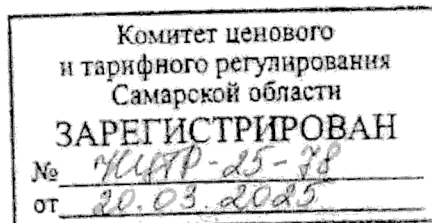 Комитет ценового
и тарифного регулирования
Самарской области
ЗАРЕГИСТРИРОВАН
№ -25-78
от 20.03.2025